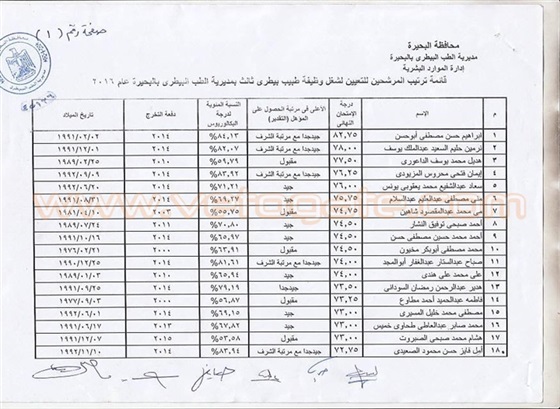 صفحة رقم (١)
محافظة البحيرة
مديرية الطب البيطرى بالبحيرة
إدارة الموارد البشرية
قائمة ترتيب المرشحين للتعيين لشغل وظيفة طبيب بيطرى ثالث بمديرية الطب البيطرى بالبحيرة عام ٢٠١٦
م الإسم درجة الإمتحان النهائى الاعلى فى مرتبة الحصول على المؤهل (التقدير) النسبة المئوية لدرجة البكالوريوس دفعة التخرج تاريخ الميلاد
١ ابراهيم حسن مصطفى أبوحسن ٨٢,٧٥ جيدجدا مع مرتبة الشرف ٨٤,١٣% ٢٠١٤ ١٩٩١/٠٢/٠٢
٢ نرمين حليم السعيد عبدالملك يوسف ٧٨,٠٠ جيدجدا مع مرتبة الشرف ٨٢,٠٧% ٢٠١٤
٣ هديل محمد يوسف الداعورى ٧٧,٠٠ مقبول ٥٩,٧٩% ٢٠١٤ ١٩٨٩/٠٢/٢٥
٤ إيمان فتحى محروس المزيودى ٧٦,٠٠ جيدجدا مع مرتبة الشرف ٨٣,٩٢% ٢٠١٤ ١٩٩٢/٠٩/٠٩
٥ سعاد عبدالشفيع محمد يعقوبى يونس ٧٦,٠٠ جيد ٧١,٢١% ٢٠١٤ ١٩٩٢/٠٦/٢٠
٦ على مصطفى عبدالعليم عبدالسلام ٧٥,٧٥ جيد ٢٠١٤ ١٩٩١/٠٨/٣١
٧ مى محمد عبدالمقصود شاهين ٧٤,٧٥ مقبول ٥٥,٧٥% ٢٠٠٣
٨ أحمد صبحى توفيق النشار جيد ٧٠,٨٠% ٢٠١٤
٩ أحمد محمد حسين مصطفى حسن ٧٤,٥٠ جيد ٢٠١٤ ١٩٩١/١٠/١٦
١٠ محمد مصطفى أبوبكر مخيون ٧٤,٥٠ مقبول ٦٣,٩١% ١٩٧٦/٠٢/١١
١١ صباح عبدالستار عبدالغفار أبوالمجد ٧٤,٠٠ جيدجدا مع مرتبة الشرف ٨١,٦١% ٢٠١٤
١٢ على محمد على هندى ٧٤,٠٠ جيد ٦٥,٩٤% ٢٠١٠ ١٩٨٩/٠١/٠٣
١٣ هدير عبدالرحمن رمضان السودانى ٧٣,٥٠ جيدجدا ٧٩,١٩% ٢٠١٤ ١٩٩١/٠٩/٢٥
١٤ فاطمه عبدالحميد أحمد مطاوع ٧٣,٢٥ مقبول ٥٦,٨٧% ٢٠٠٠ ١٩٧٧/٠٩/٠٣
١٥ مصطفى محمد خليل المسيرى ٧٣,٠٠ جيد ٦٩,١٥% ٢٠١٤
١٦ محمد صابر عبدالعاطى طحاوى خميس ٧٣,٠٠ جيد ٦٧,٨٢% ٢٠١٣ ١٩٩١/٠٦/١٧
١٧ هشام محمد صبحى الصبروت ٧٣,٠٠ مقبول ٥٣,٥٨% ٢٠١٥ ١٩٩٠/٠٢/١٢
١٨ أمل فايز حسن محمود الصعيدى ٧٢,٧٥ جيدجدا مع مرتبة الشرف ٨٣,٩٤% ٢٠١٤ ١٩٩٢/١١/١٠